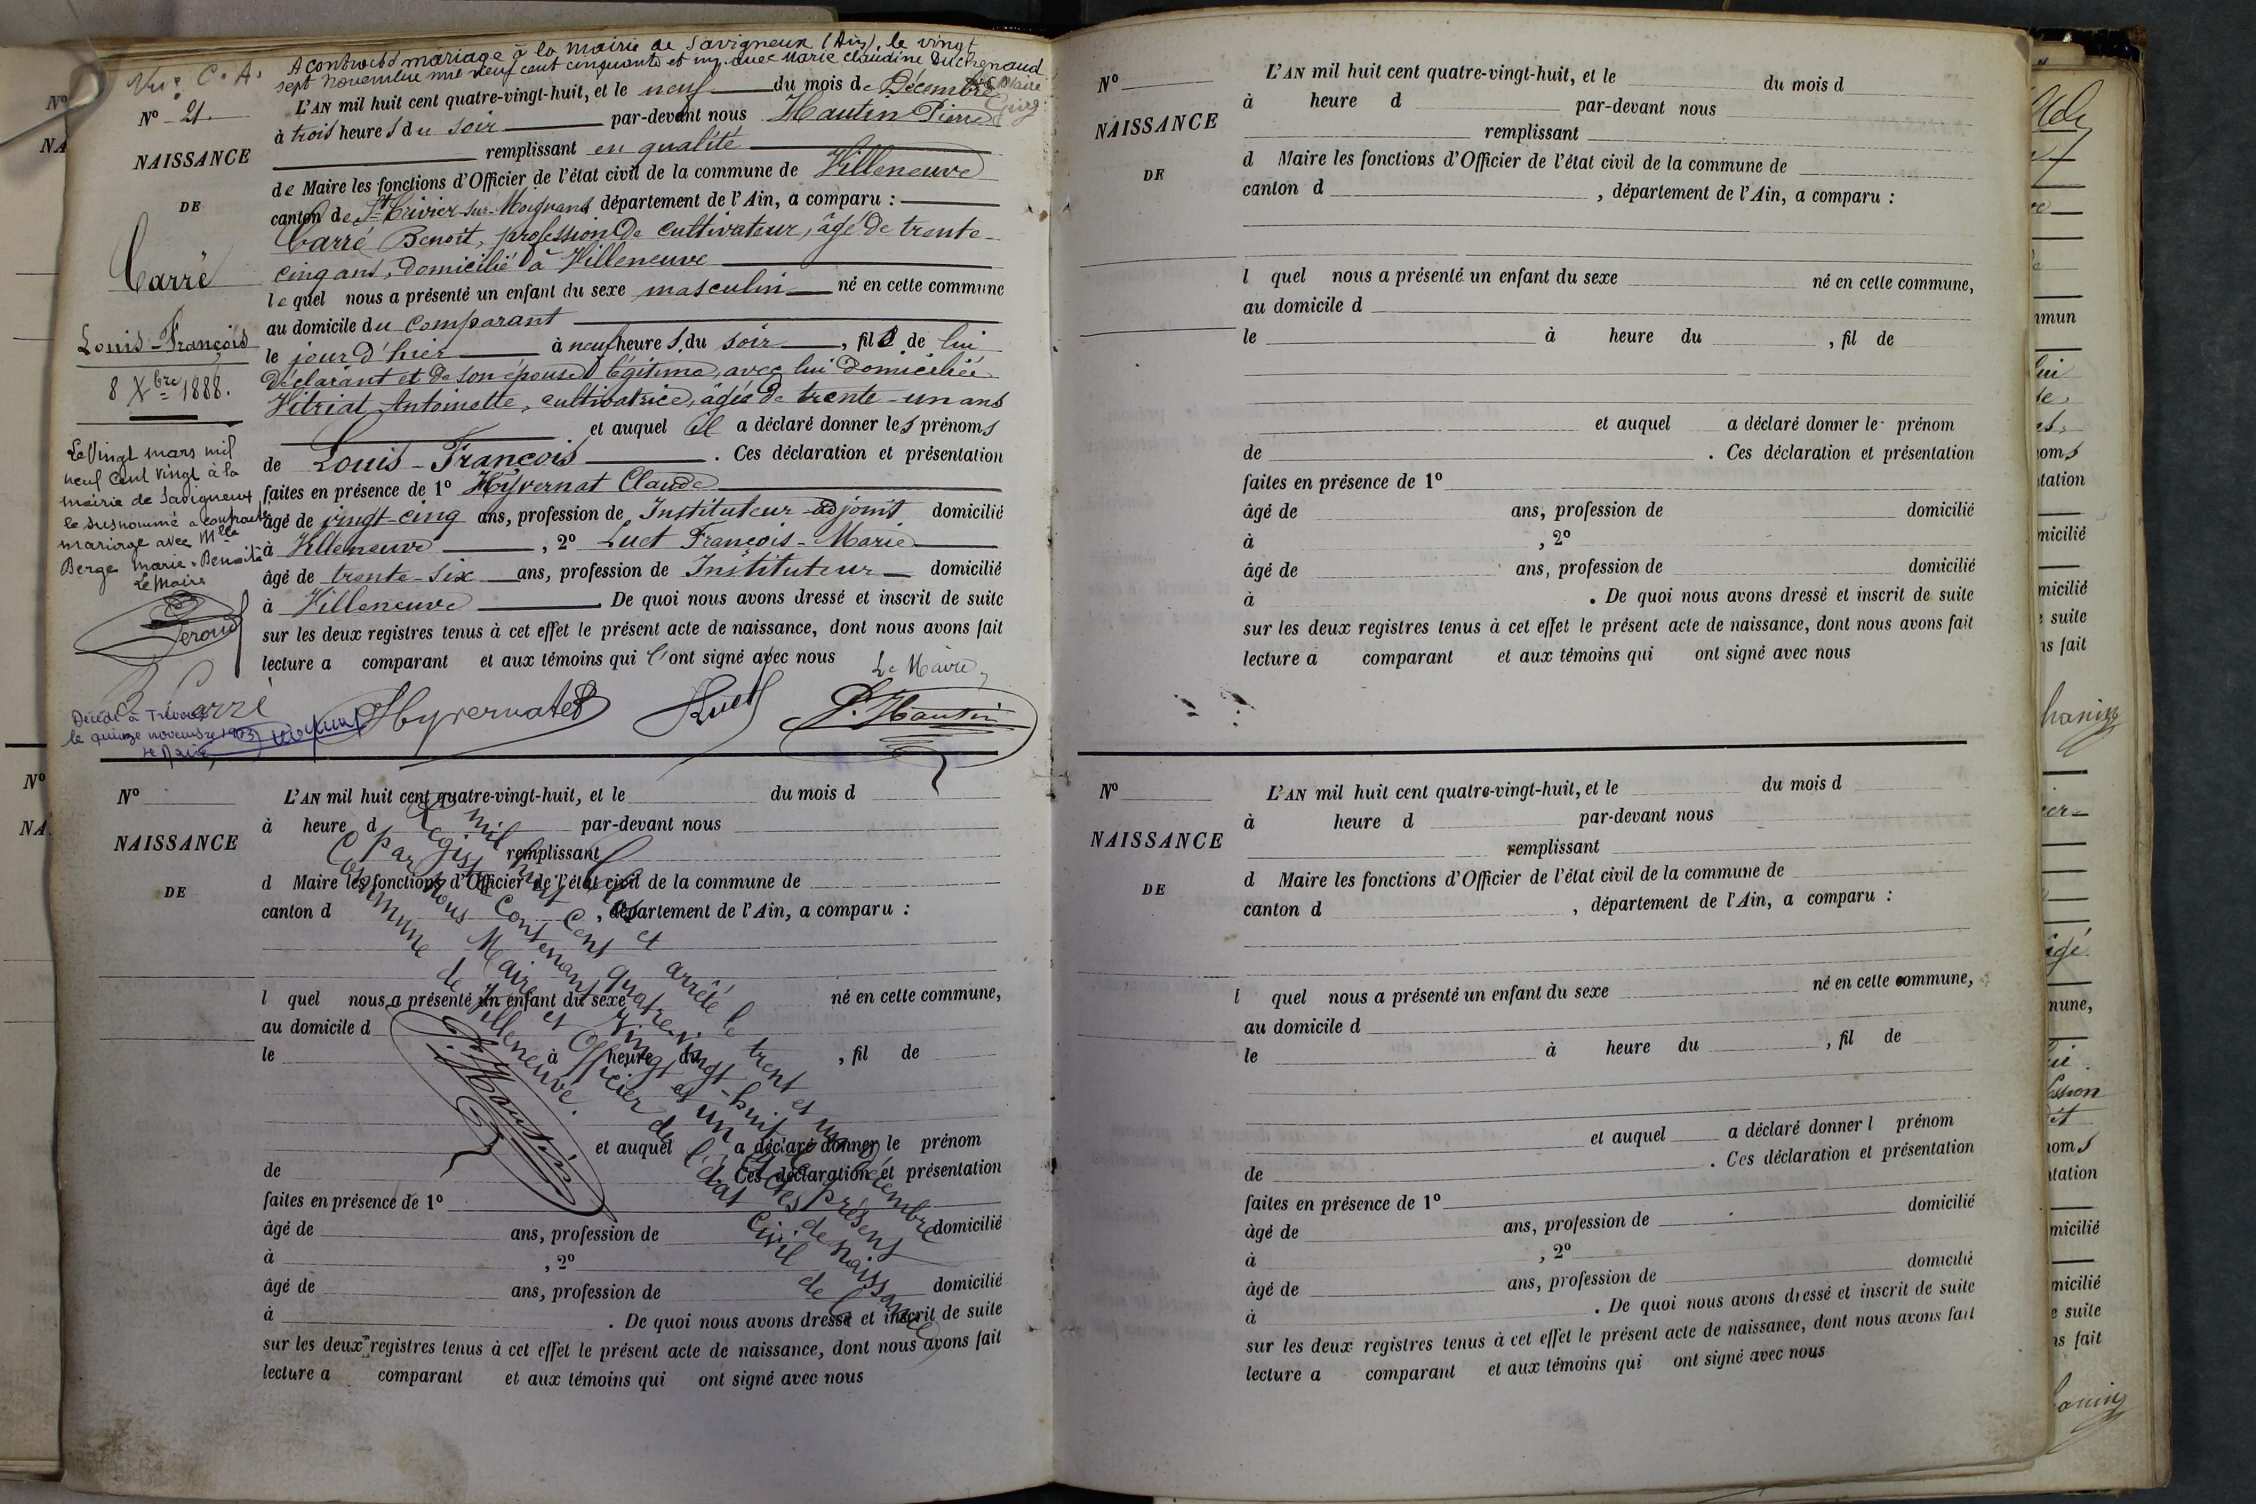 A contracté mariage à la mairie de Savigneux (Ain), le vingt
sept novembre mil neuf cent cinquante et un avec Marie Claudine Duchgnaud
Vu : C. A.
Le Maire
Nº 21.
NAISSANCE
DE
Carré
Louis-François
8 Xbre 1888.
Le Vingt mars mil
neuf cent vingt à la
mairie de Savigneux
le susnommé a contracté
mariage avec Mlle
Berge Marie-Benoite
Le Maire
Décédé à Trévoux
le quinze novembre
Le Maire,
L'AN mil huit cent quatre-vingt-huit, et le neuf du mois de Décembre
à trois heures du soir par-devant nous Hautin Pierre
remplissant en qualité
de Maire les fonctions d'Officier de l'état civil de la commune de Villeneuve
canton de St Trivier-sur-Moignans, département de l'Ain, a comparu :
Carré Benoit, profession de cultivateur, âgé de trente-
cinq ans, domicilié à Villeneuve
lequel nous a présenté un enfant du sexe masculin né en cette commune
au domicile du comparant
le jour d'hier à neuf heures du soir, fils de lui
déclarant et de son épouse légitime, avec lui domiciliée
Vitriat Antoinette, cultivatrice, âgée de trente-un ans
et auquel il a déclaré donner les prénoms
de Louis-François. Ces déclaration et présentation
faites en présence de 1º Hyvernat Claude
âgé de vingt-cinq ans, profession de Instituteur-adjoint domicilié
à Villeneuve, 2º Luet François-Marie
âgé de trente-six ans, profession de Instituteur domicilié
à Villeneuve. De quoi nous avons dressé et inscrit de suite
sur les deux registres tenus à cet effet le présent acte de naissance, dont nous avons fait
lecture a comparant et aux témoins qui l'ont signé avec nous
Le Maire,
B Carré Hyvernat Luet P. Hautin
Nº
NAISSANCE
DE
L'AN mil huit cent quatre-vingt-huit, et le du mois d
à heure d par-devant nous
remplissant
d Maire les fonctions d'Officier de l'état civil de la commune de
canton d , département de l'Ain, a comparu :
l quel nous a présenté un enfant du sexe né en cette commune,
au domicile d
le à heure du , fil de
et auquel a déclaré donner le prénom
de . Ces déclaration et présentation
faites en présence de 1º
âgé de ans, profession de domicilié
à , 2º
âgé de ans, profession de domicilié
à . De quoi nous avons dressé et inscrit de suite
sur les deux registres tenus à cet effet le présent acte de naissance, dont nous avons fait
lecture a comparant et aux témoins qui ont signé avec nous
Clos et arrêté le trent et un Décembre
mil huit cent quatre-vingt-huit le présent
Registre contenant Vingt et un Actes de naissance
par nous Maire et Officier de l'état Civil de la
Commune de Villeneuve.
P. Hautin
Nº
NAISSANCE
DE
L'AN mil huit cent quatre-vingt-huit, et le du mois d
à heure d par-devant nous
remplissant
d Maire les fonctions d'Officier de l'état civil de la commune de
canton d , département de l'Ain, a comparu :
l quel nous a présenté un enfant du sexe né en cette commune,
au domicile d
le à heure du , fil de
et auquel a déclaré donner le prénom
de . Ces déclaration et présentation
faites en présence de 1º
âgé de ans, profession de domicilié
à , 2º
âgé de ans, profession de domicilié
à . De quoi nous avons dressé et inscrit de suite
sur les deux registres tenus à cet effet le présent acte de naissance, dont nous avons fait
lecture a comparant et aux témoins qui ont signé avec nous
Nº
NAISSANCE
DE
L'AN mil huit cent quatre-vingt-huit, et le du mois d
à heure d par-devant nous
remplissant
d Maire les fonctions d'Officier de l'état civil de la commune de
canton d , département de l'Ain, a comparu :
l quel nous a présenté un enfant du sexe né en cette commune,
au domicile d
le à heure du , fil de
et auquel a déclaré donner l prénom
de . Ces déclaration et présentation
faites en présence de 1º
âgé de ans, profession de domicilié
à , 2º
âgé de ans, profession de domicilié
à . De quoi nous avons dressé et inscrit de suite
sur les deux registres tenus à cet effet le présent acte de naissance, dont nous avons fait
lecture a comparant et aux témoins qui ont signé avec nous